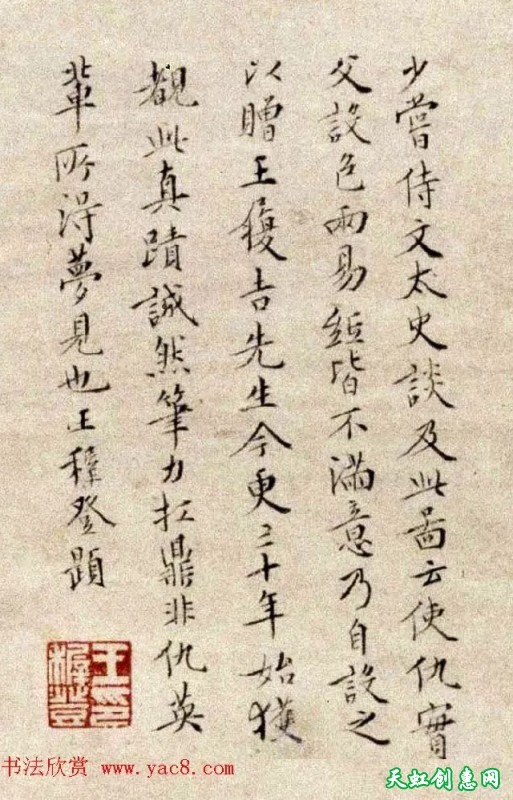 少嘗侍文太史談及此啚云使仇實
父設色兩易絹皆不滿意乃自設之
以贈王履吉先生今更三十年始獲
觀此真蹟誠然筆力扛鼎非仇英
輩所淂夢見也王穉登題
王穉登印
书法欣赏 www.yac8.com
天虹创意网